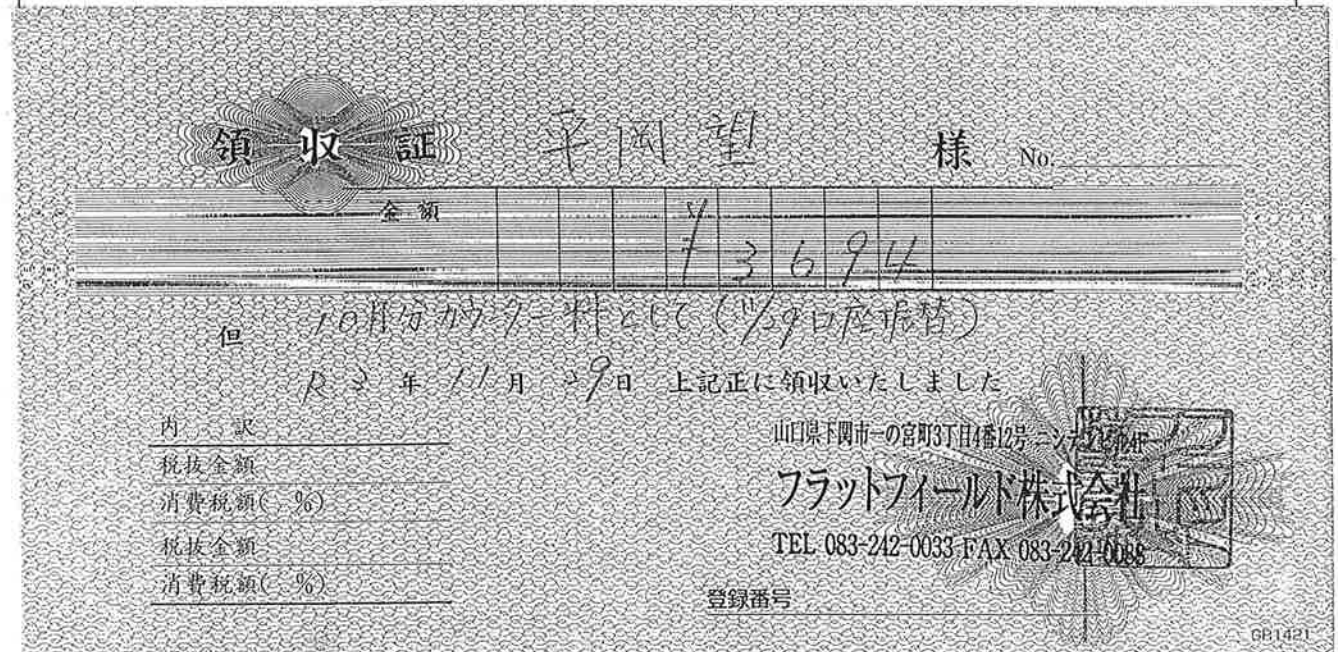 領収証 平岡望 様 No.
金額 ¥3694
但 10月分カウンター料として(11/29口座振替)
R3年11月29日 上記正に領収いたしました
内訳
税抜金額
消費税額( %)
税抜金額
消費税額( %)
山口県下関市一の宮町3丁目4番12号
フラットフィールド株式会社
TEL 083-242-0033 FAX 083-242-0088
登録番号
GB1421